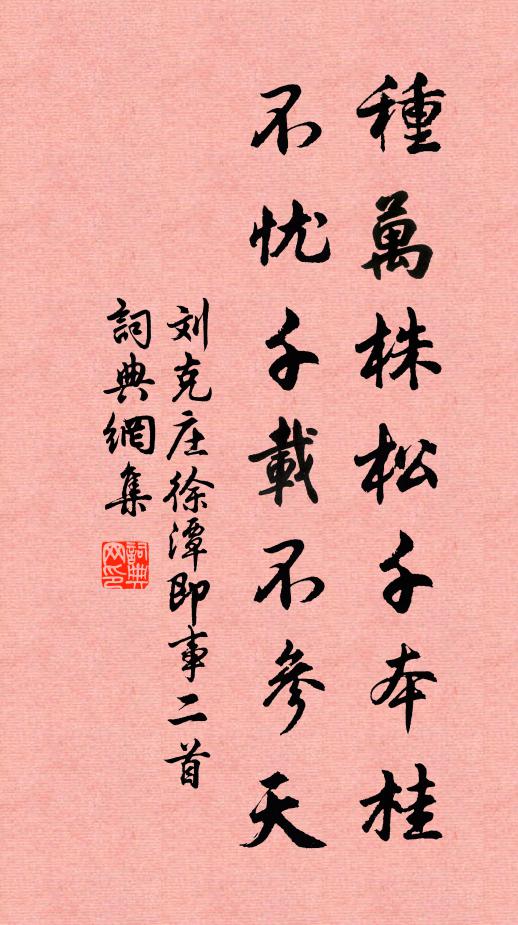 種萬株松千本桂
不忧千載不參天
刘克庄徐潭即事二首
詞典網集
詞典网印